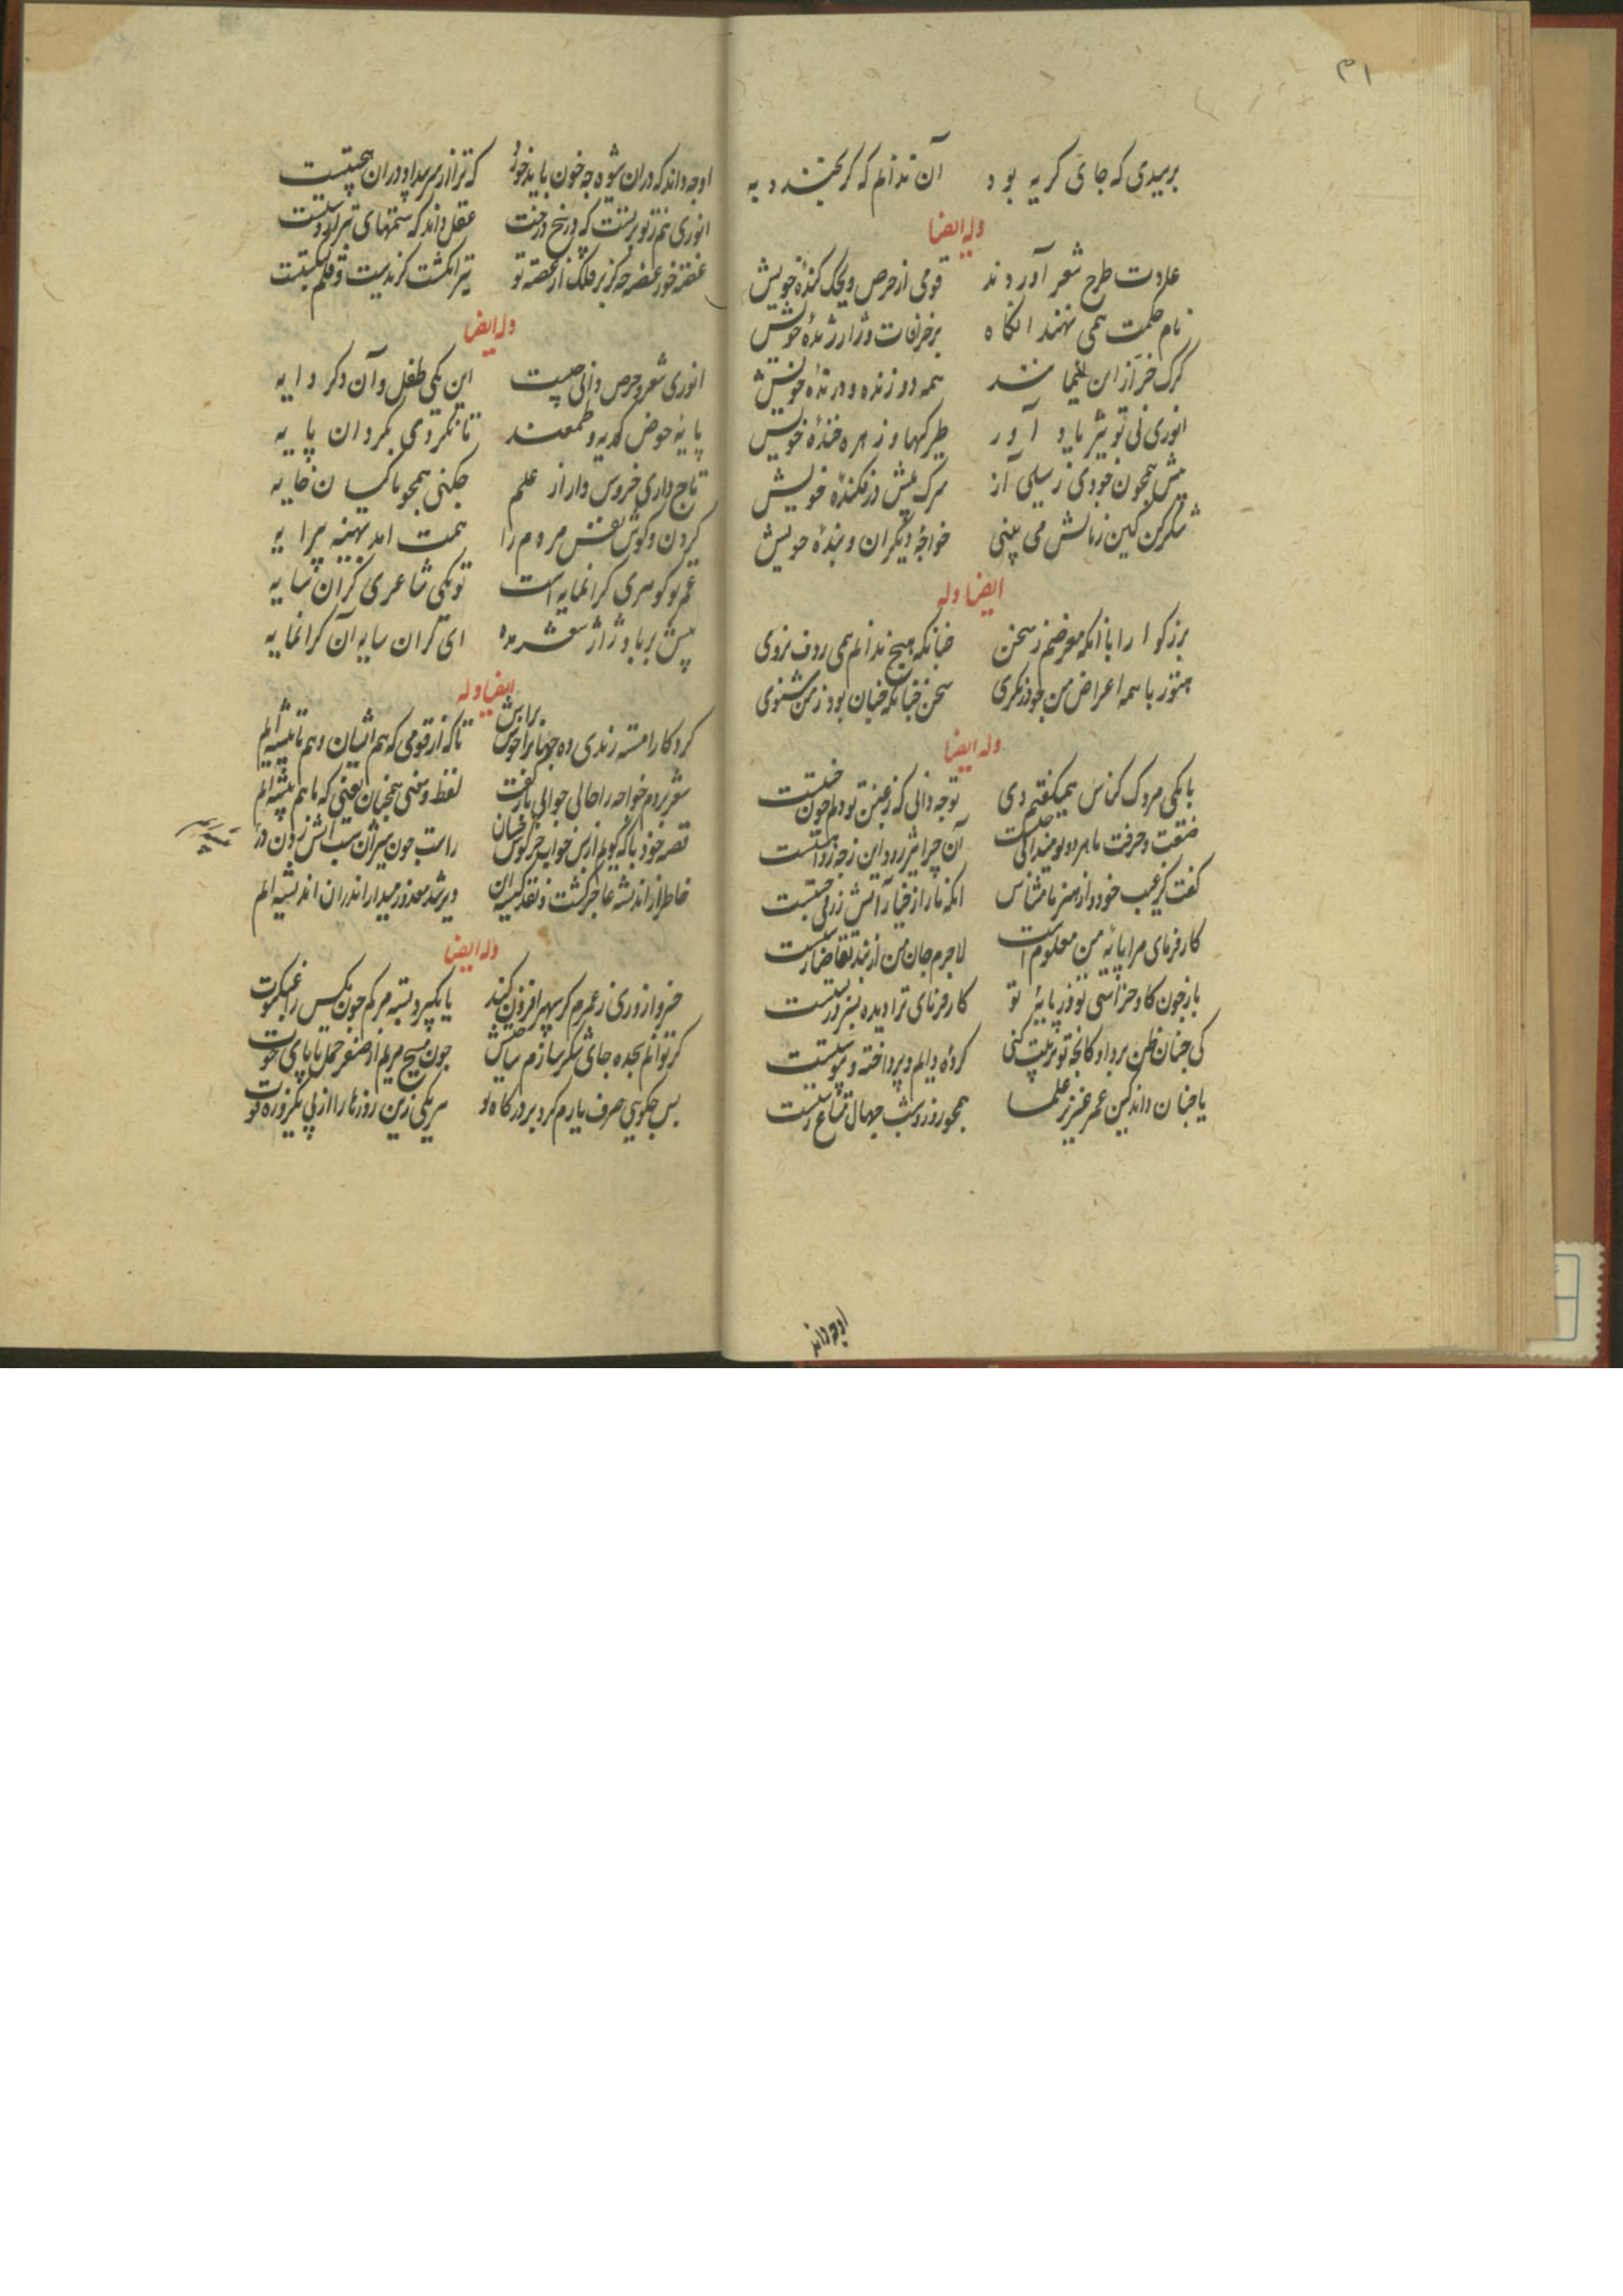 ۳۱
برسیدی که جای کریه بود آن ندانم که کر بخندد به
وله ایضا
عادت طرح شعر آوردند قومی از حرص و کنده خویش
نام حکمت همی نهند انکاه برخرافات و ژاژ ژنده خویش
کرک خر از این همه دوزنده و درنده خویش
انوری نی تو نیز یاد آور و زهره خنده خویش
پیش همچون خودی ز سیلی آز سرک پیش درفکنده خویش
شکر کن کین زمانش می بینی خواجه دیکران و بنده خویش
ایضا وله
بزرکوارا با انکه معرضم ز سخن چنانکه هیچ ندانم همی ردف ز روی
هنوز با همه اعراض من چو درنکری سخن چنانکه چنان بود ز من شنوی
وله ایضا
با یکی مردک کناس همیکفتم دی تو چه دانی که ز غبن تو دلم چون خستست
صنعت و حرفت ما هر دو تو میدانی چیست آن چرا تیز رود این ز چه رو آهستست
کفت کر عیب خود و از هنر ما مشناس انکه ما را ز فنا آتش
کارفرمای مرا پایه من معلوم است لاجرم جان من از بند تقاضا رستست
باز چون کاو خراسی تو و در پایه تو کارفرمای ترا دیده نیز رستست
کی چنان ظن برد او کانچه تو ترتیب کنی کرده دایم و پرداخته و پیوستست
یا چنان داند کین عمر عزیز علما همچو روز و شب جهال متاع رستست
او چه داند
او چه داند که دران شیوه چه خون باید خورد که ترا از سر سودا و دران پیوستست
انوری هم ز تو برتست که بر بیخ درخت عقل داند که ستمهای تبر از دستست
غصه خور غصه چه کز بر فلک از غصه تو تیر انکشت کزیدست و قلم بشکستست
وله ایضا
انوری شعر و حرص دانی چیست این یکی طفل و آن دکر دایه
پایه حوض کدیه و طمعند تا نکردی بکرد آن پایه
تاج داری خروس وار از علم چکنی همچو ماکیان خایه
کردن و کوش نفس مردم را همت امد بهینه پیرایه
عمر تو کوهری کرانمایه است تو یکی شاعری کران سایه
بیش بر باد ژاژ شعر مده ای کران سایه آن کرانمایه
ایضا وله
کردکارا مستمندی ده جهانرا خوش براش تا که از قومی که هم ایشان و هم ما تیشه ایم
شعر بردم خواجه را حالی جوابی باز کفت لفظ و معنی همچنان یعنی که ما هم پیشه ایم
قصه خود با که کویم از بن خواب خرکوشان راست چون شیران شب آتش زدن در بیشه ایم
خاطر از اندیشه عاجز کشت و نقد کیسه این دیر شد معذور میدار اندران اندیشه ایم
وله ایضا
خسروا روزی ز عمرم کر سپهر افزون کند یا بکیرد بسته مرکم چون مکس را عنکبوت
کر توانم سجده جای شکر سازم ساحتش چون مسیح مریم از صفر حمل تا پای حوت
پس چکویی صرف یارم کرد بر درکاه تو هر یکی زین روزها را از پی یکروزه قوت